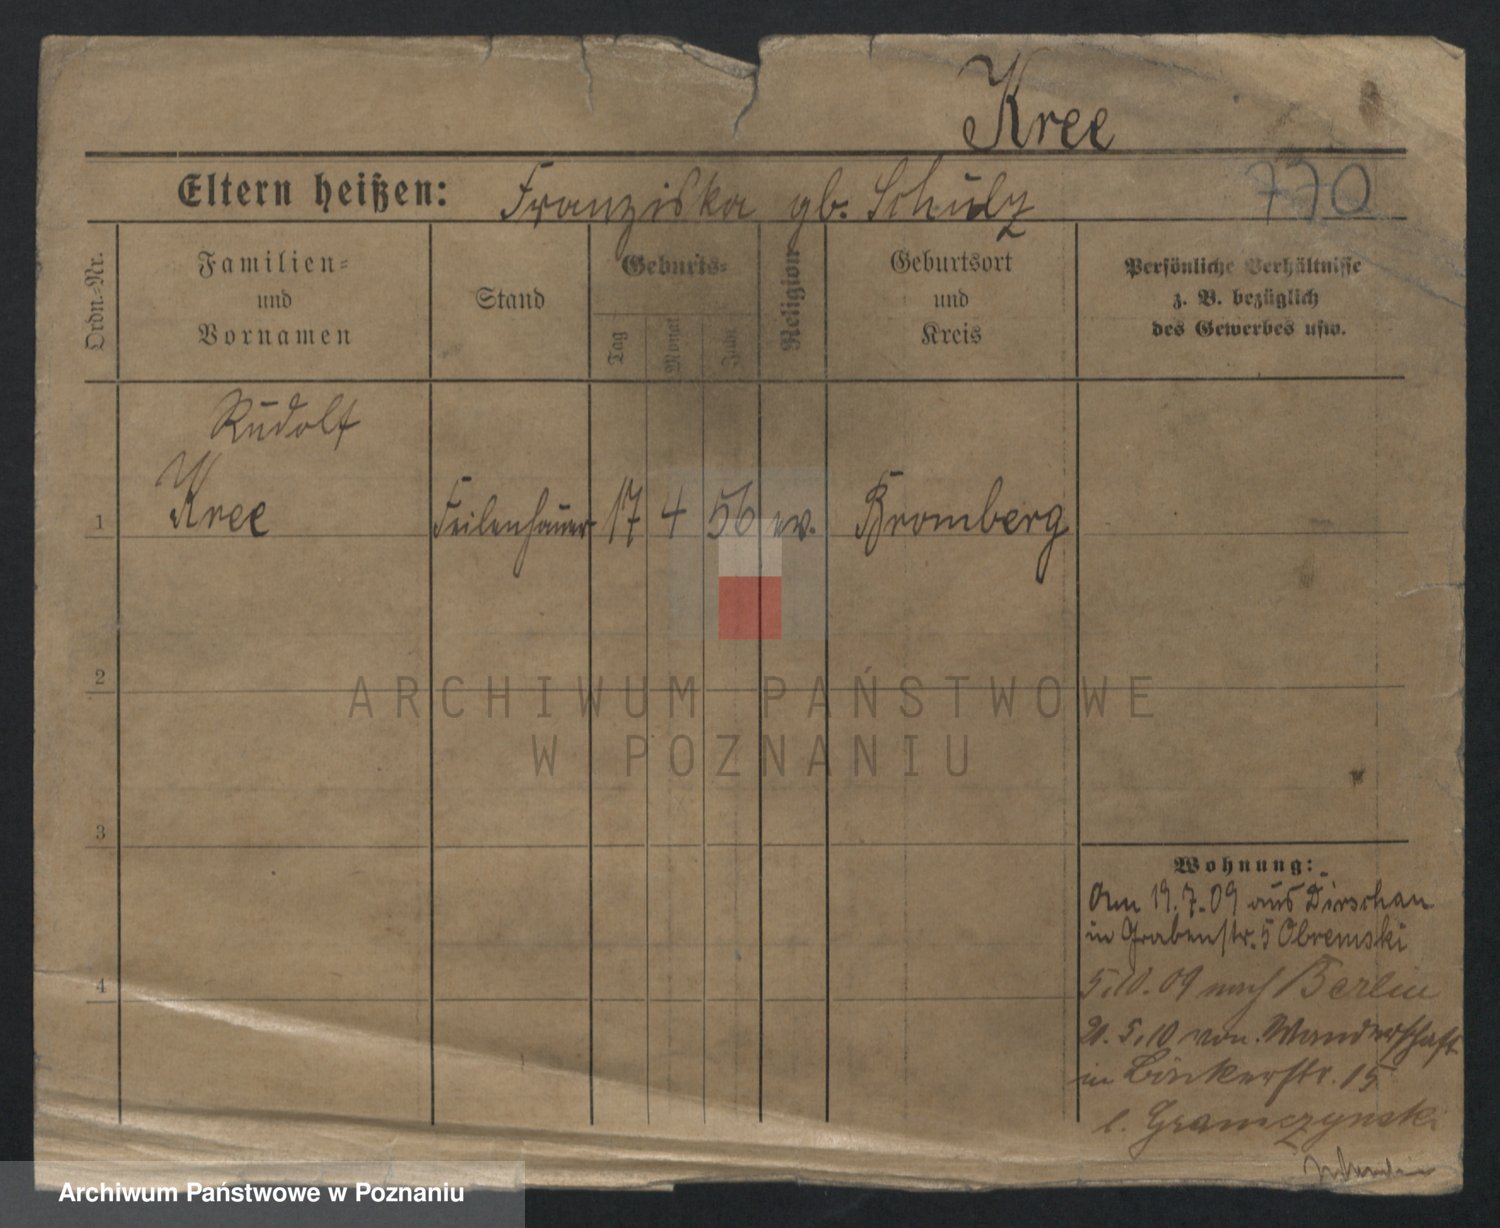 Kree
Eltern heißen: Franziska gb. Schulz 770
Ordn.-Nr.
Familien-
und
Vornamen
Stand
Geburts-
Tag
Monat
Jahr
Religion
Geburtsort
und
Kreis
Persönliche Verhältnisse
z. B. bezüglich
des Gewerbes usw.
Rudolf
1 Kree Feilenhauer 17 4 56 ev. Bromberg
2
ARCHIWUM PAŃSTWOWE
W POZNANIU
3
Wohnung:
Am 19.7.09 aus Dirschau
in Grabenstr. 5 Obremski
4
5.10.09 nach Berlin
20.5.10 von Wanderschaft
in Bäckerstr. 15
b. Gramczynski
Archiwum Państwowe w Poznaniu